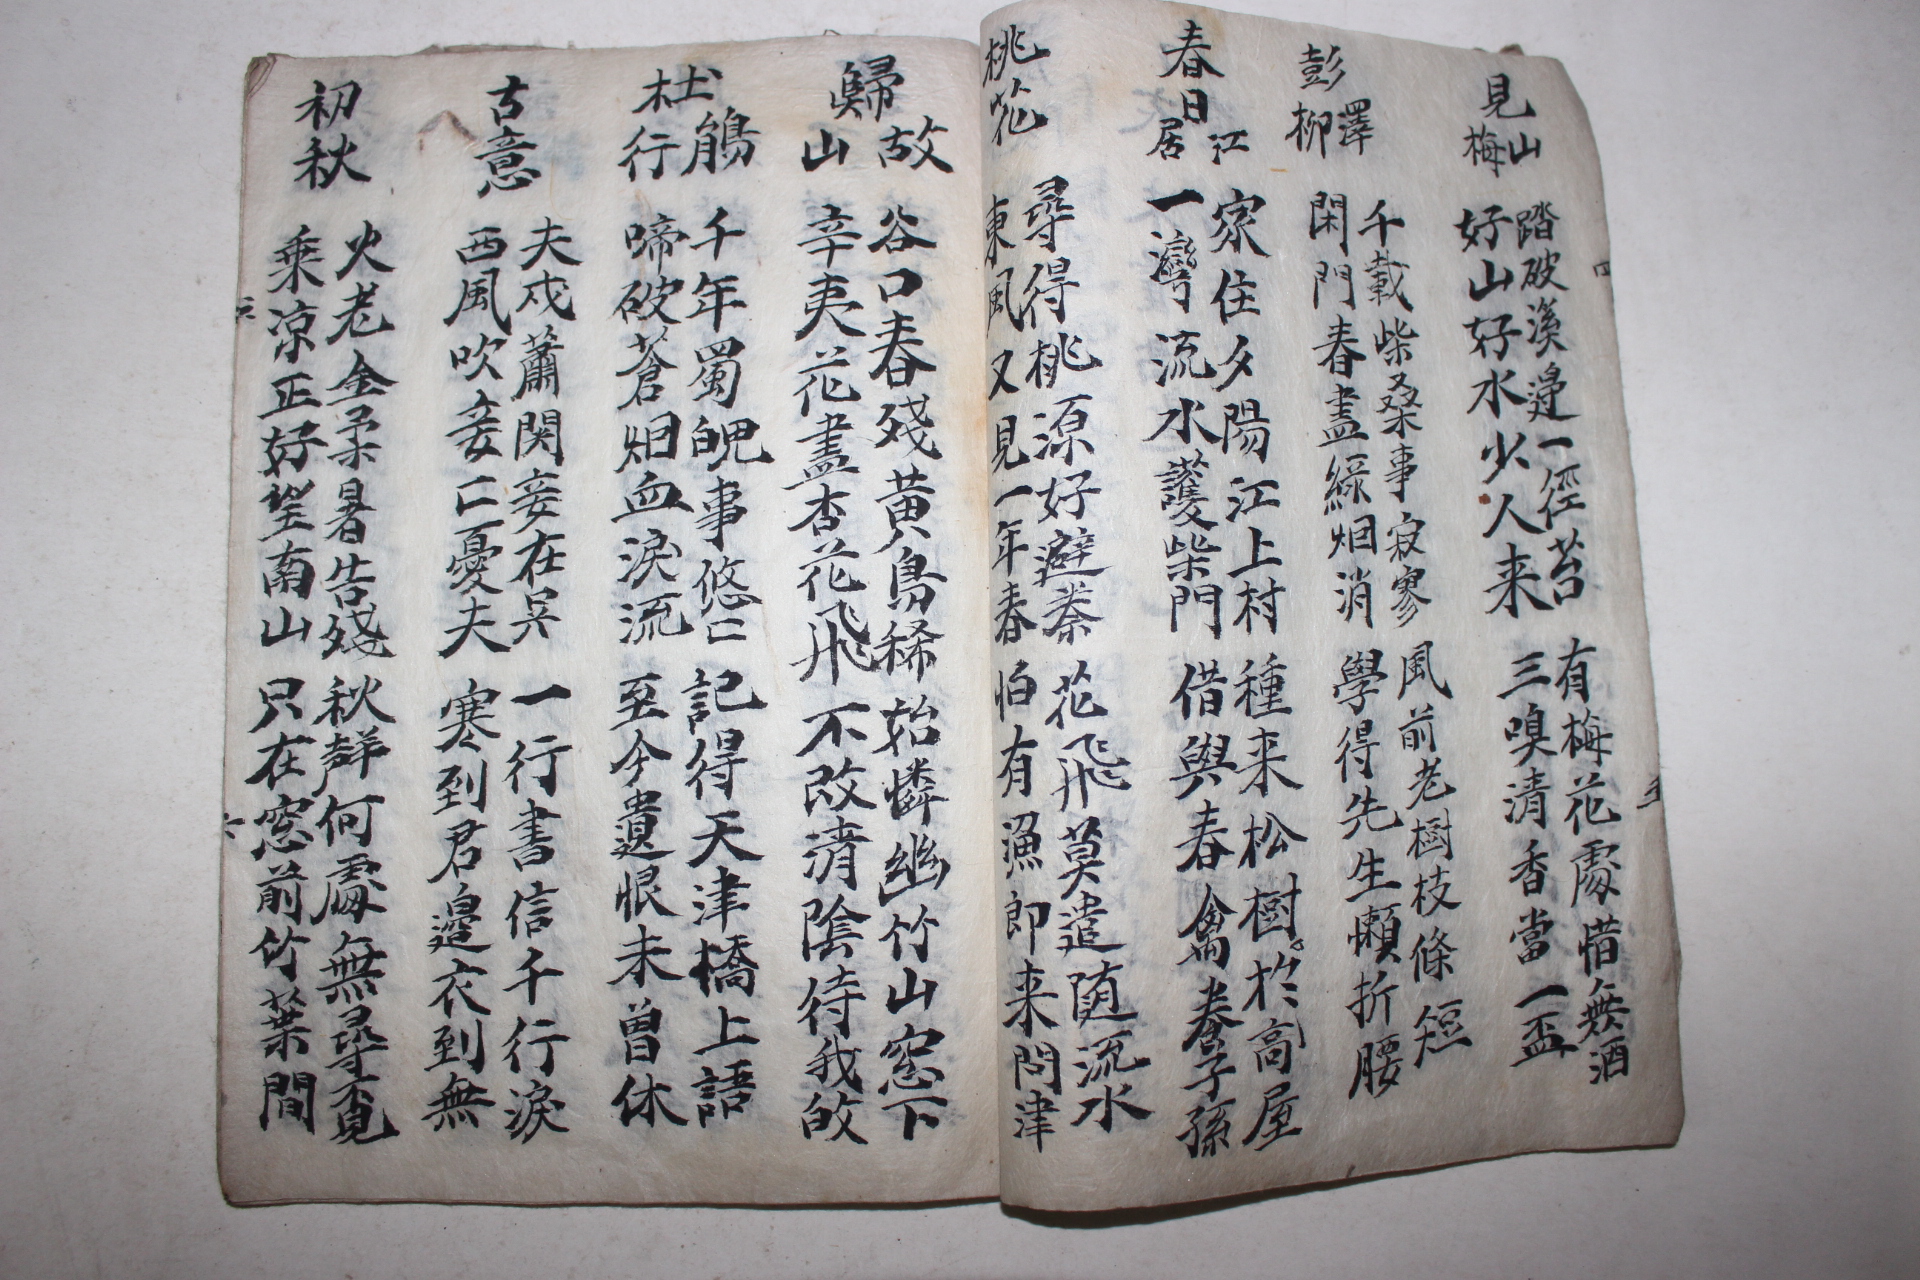 見山梅
踏破溪邊一徑苔 有梅花處惜無酒
好山好水少人来 三嗅清香當一盃
彭澤柳
千載柴桑事寂寥 風前老樹枝條短
閑門春盡綠烟消 學得先生懶折腰
春日江居
家住夕陽江上村 種来松樹於高屋
一灣流水護柴門 借與春禽養子孫
桃花
尋得桃源好避秦 花飛莫遣随流水
東風又見一年春 怕有漁郎来問津
歸故山
谷口春殘黃鳥稀 始憐幽竹山窓下
辛夷花盡杏花飛 不改清陰待我
杜鵑行
千年蜀魄事悠〻 記得天津橋上語
啼破蒼烟血淚流 至今遺恨未曾休
古意
夫戍蕭関妾在吴 一行書信千行淚
西風吹妾〻憂夫 寒到君邊衣到無
初秋
火老金柔暑告殘 秋聲何處無尋覓
乗凉正好望南山 只在窓前竹葉間
五
六